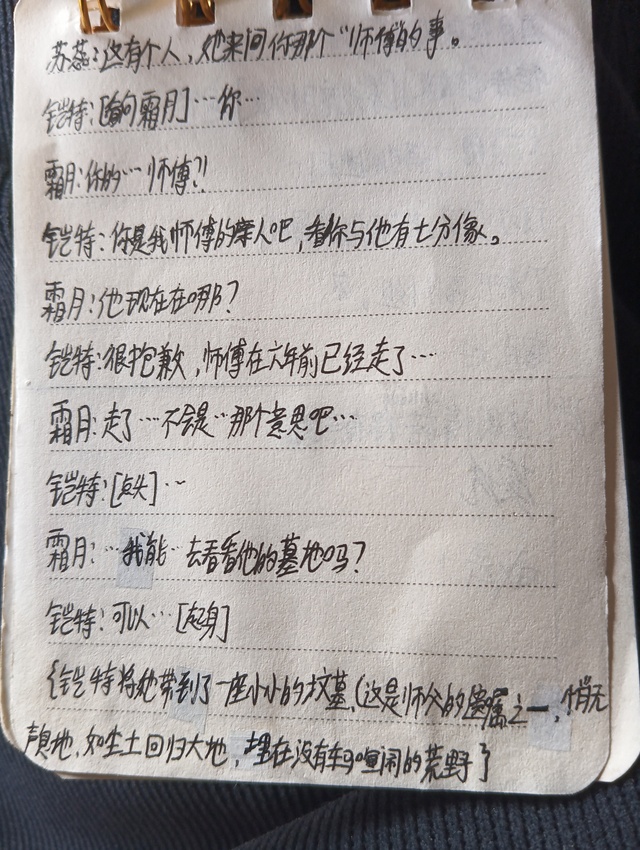 苏蕊:这有个人,她来问你那个“师傅”的事。
铠特:[看向霜月]…你…
霜月:你的…师傅?!
铠特:你是我师傅的亲人吧,看你与他有七分像。
霜月:他现在在哪?
铠特:很抱歉,师傅在六年前已经走了…
霜月:走了…不会是…那个意思吧…
铠特:[点头]…
霜月:…我能…去看看他的墓地吗?
铠特:可以…[起身]
{铠特将她带到了一座小小的坟墓,(这是师父的遗属之一,悄无
声息地,如尘土回归大地,埋在没有车马喧闹的荒野}